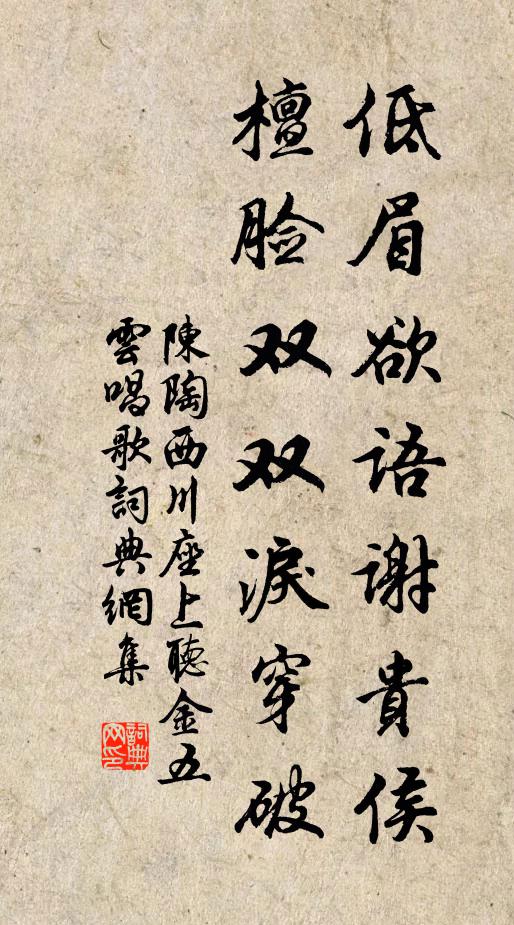 低眉欲语谢貴侯
檀脸双双淚穿破
陳陶西川座上聽金五
雲唱歌詞典網集
詞典
网印